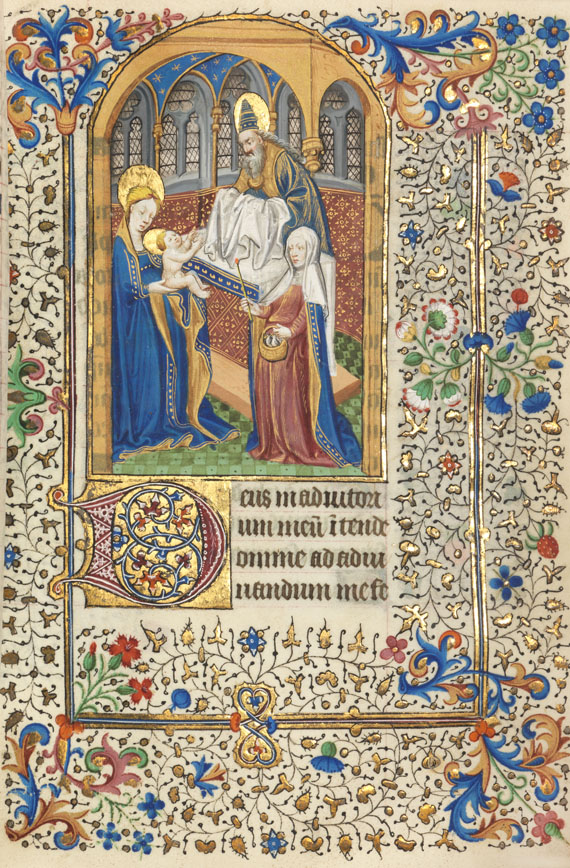 Deus in adiutori
um meū ītende
omine ad adiu
uandum me fe